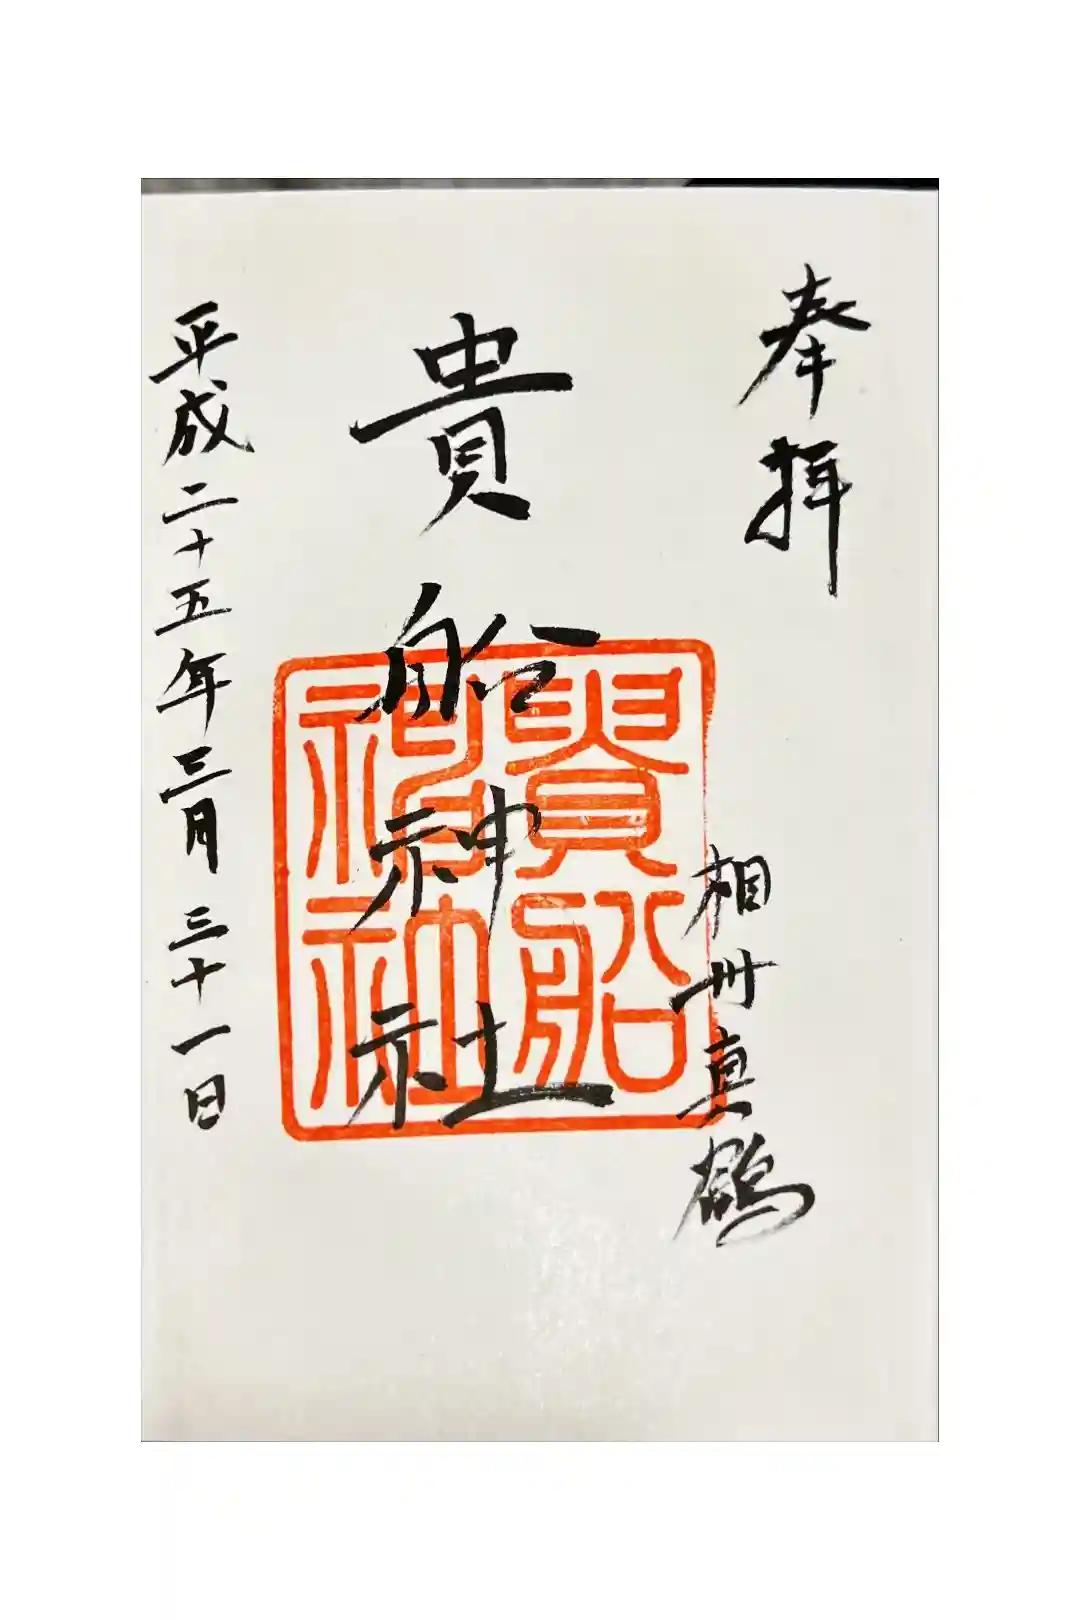 奉拝
相州真鶴
貴船神社
貴船神社
平成二十五年三月三十一日